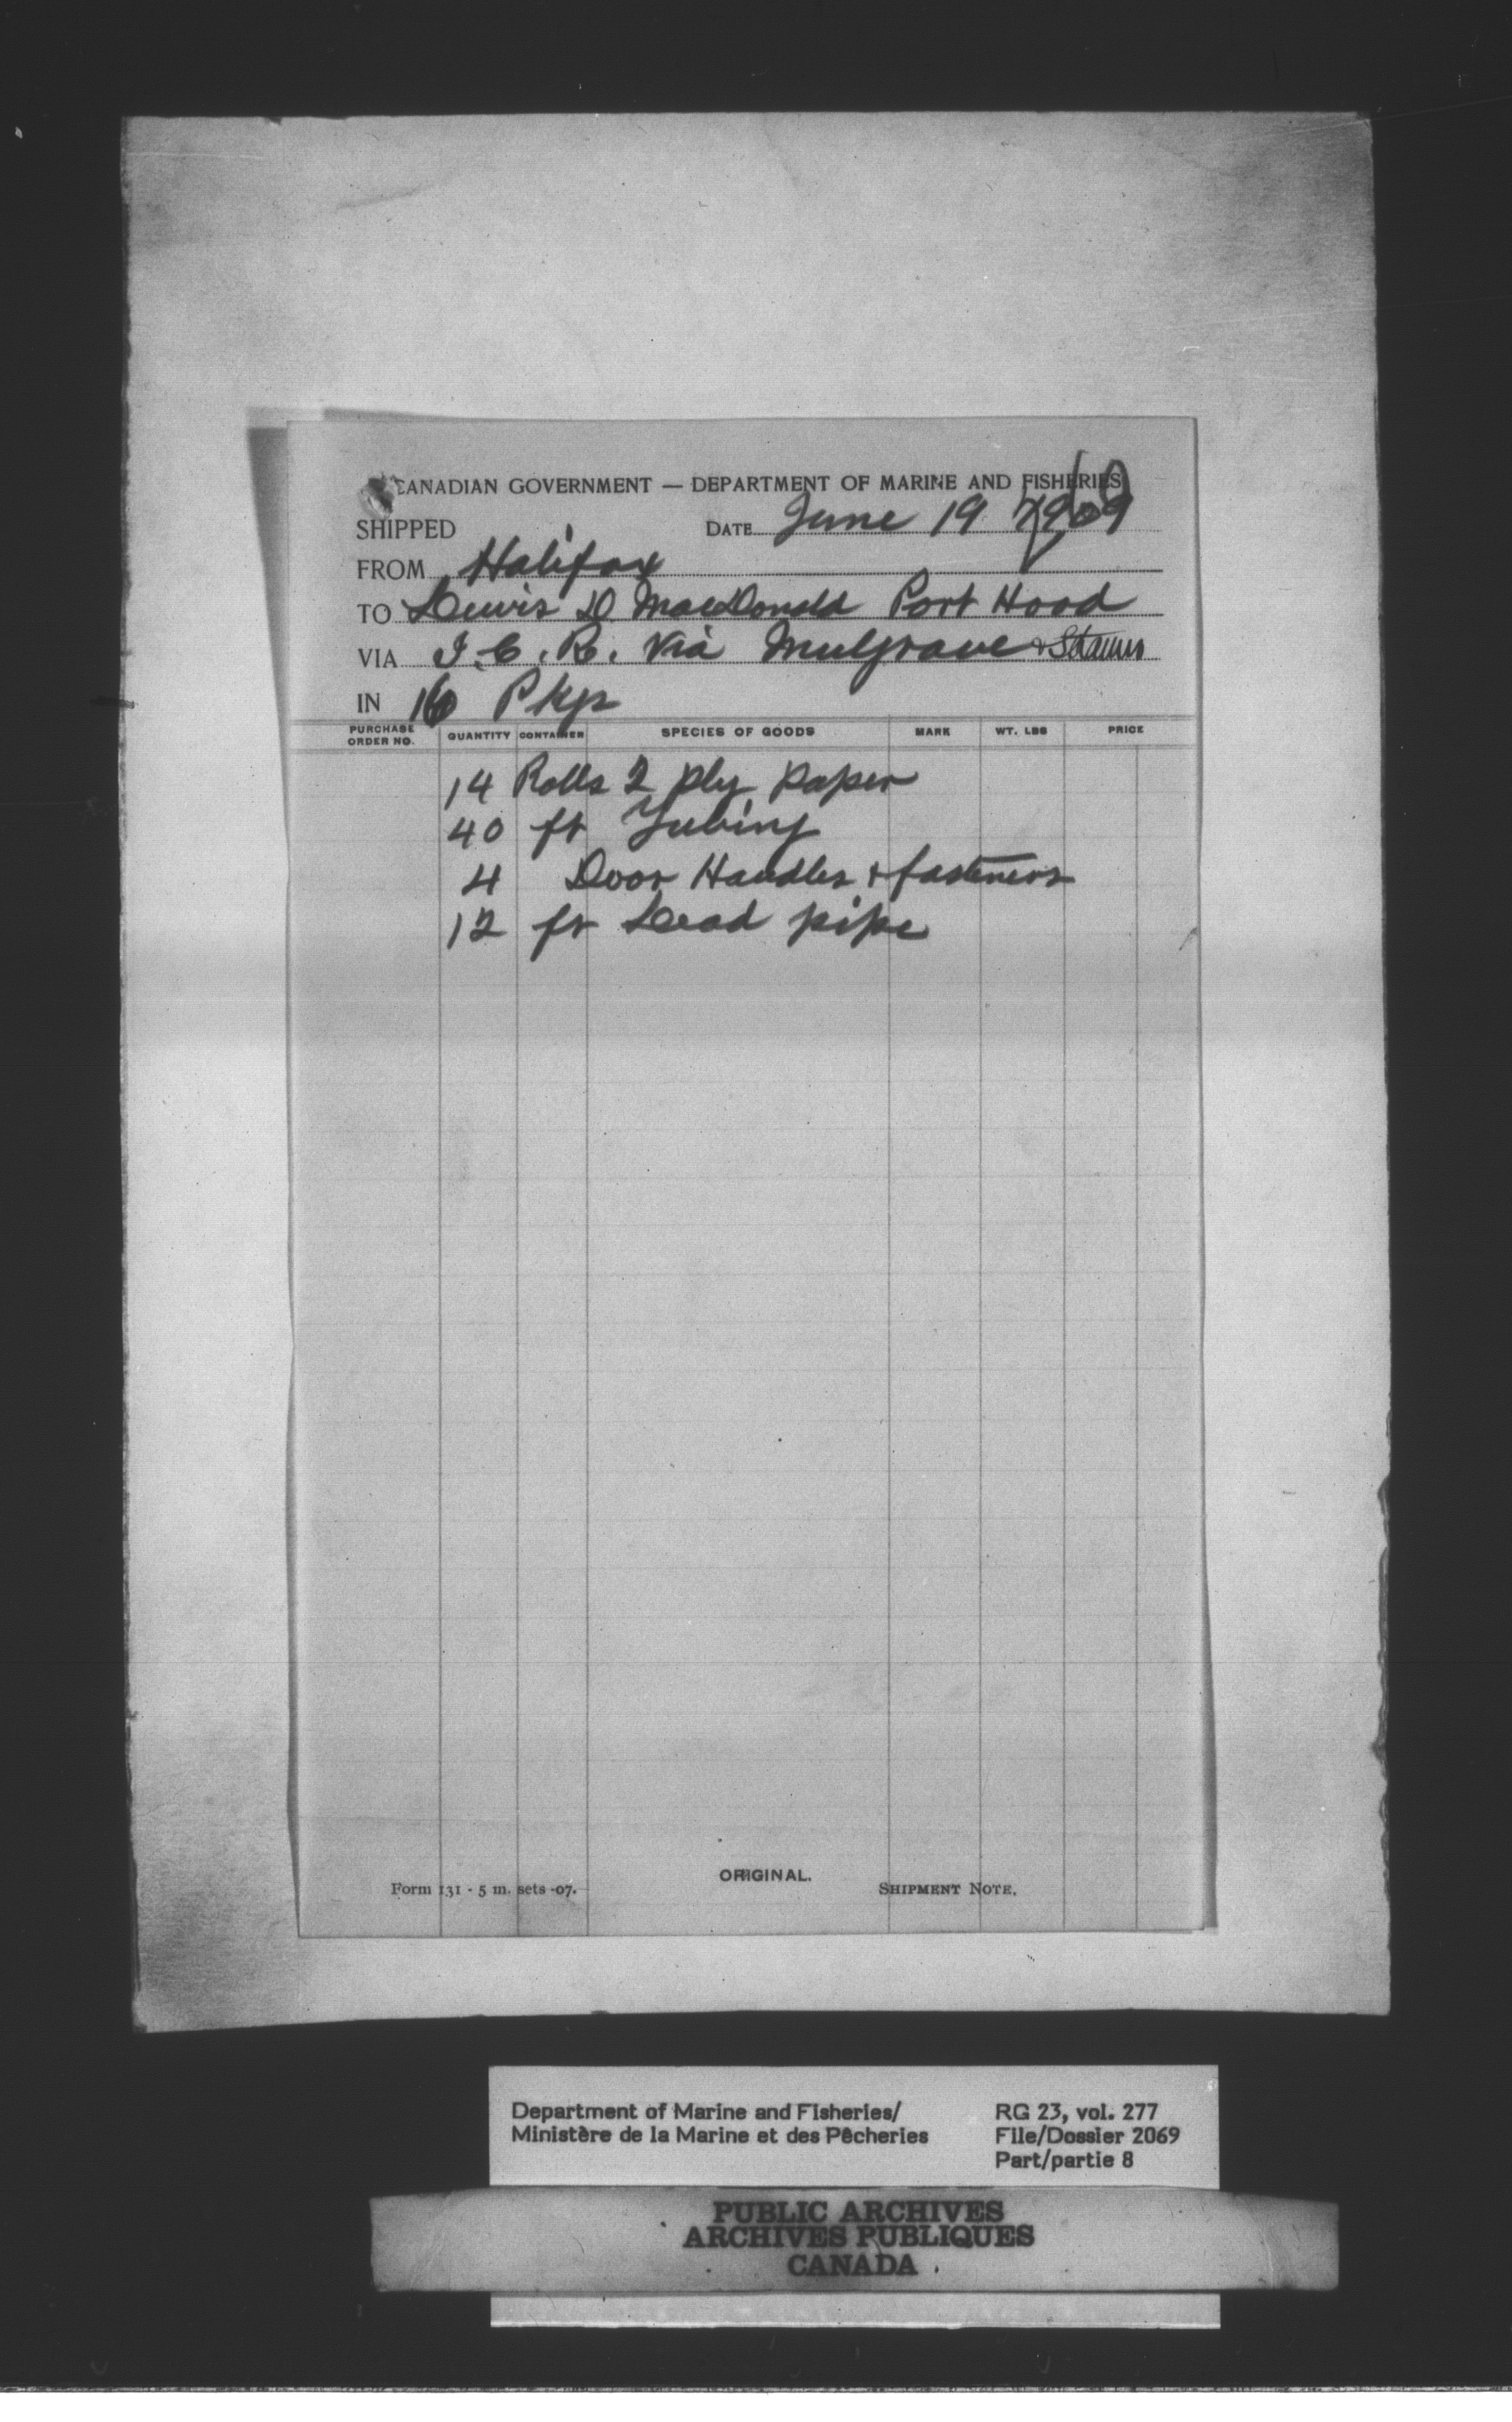 CANADIAN GOVERNMENT — DEPARTMENT OF MARINE AND FISHERIES
SHIPPED DATE June 19 1909
FROM Halifax
TO Lewis D MacDonald Port Hood
VIA I.C.R. Via Mulgrave &
IN 16 Pkgs
PURCHASE ORDER NO. QUANTITY CONTAINER SPECIES OF GOODS MARK WT. LBS PRICE
14 Rolls 2 ply paper
40 ft Tubing
4 Door Handles & fasteners
12 ft Lead pipe
ORIGINAL.
Form 131 - 5 m. sets -07. SHIPMENT NOTE.
Department of Marine and Fisheries/ RG 23, vol. 277
Ministère de la Marine et des Pêcheries File/Dossier 2069
Part/partie 8
PUBLIC ARCHIVES
ARCHIVES PUBLIQUES
CANADA